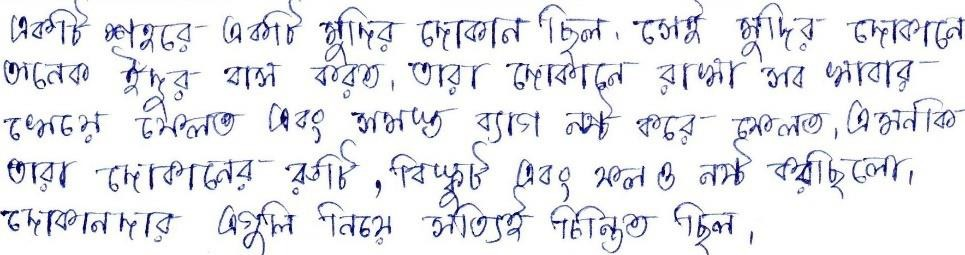 একটি শহরে একটি মুদির দোকান ছিল। সেই মুদির দোকানে
অনেক ইঁদুর বাস করত, তারা দোকানে রাখা সব খাবার
খেয়ে ফেলত এবং সমস্ত ব্যাগ নষ্ট করে ফেলত, এমনকি
তারা দোকানের রুটি, বিস্কুট এবং ফলও নষ্ট করছিলো।
দোকানদার এগুলি নিয়ে সত্যিই চিন্তিত ছিল।